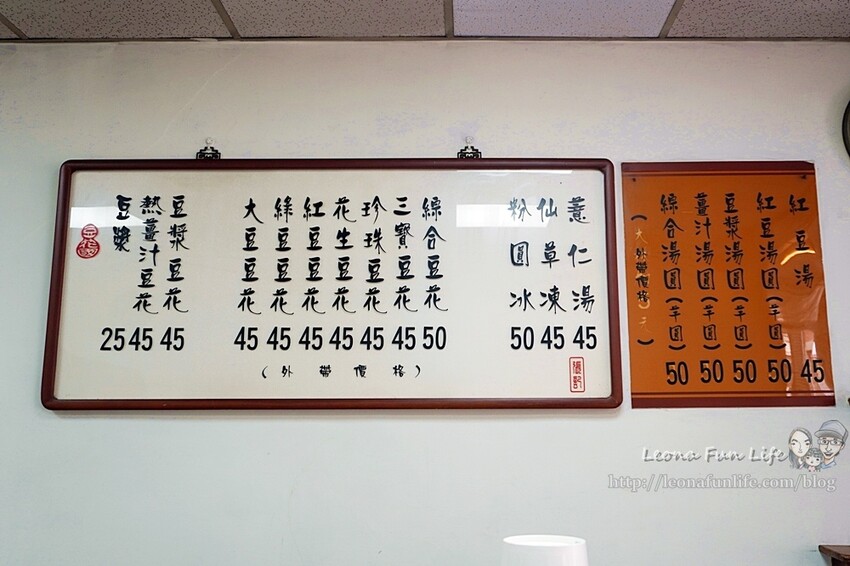 薏仁湯 45
仙草凍 45
粉圓冰 50
綜合豆花 50
三寶豆花 45
珍珠豆花 45
花生豆花 45
紅豆豆花 45
綠豆豆花 45
大豆豆花 45
豆漿豆花 45
熱薑汁豆花 45
豆漿 25
(外帶價格)
張記
紅豆湯 45
紅豆湯圓(芋圓) 50
豆漿湯圓(芋圓) 50
薑汁湯圓(芋圓) 50
綜合湯圓(芋圓) 50
外帶價格
Leona Fun Life
http://leonafunlife.com/blog